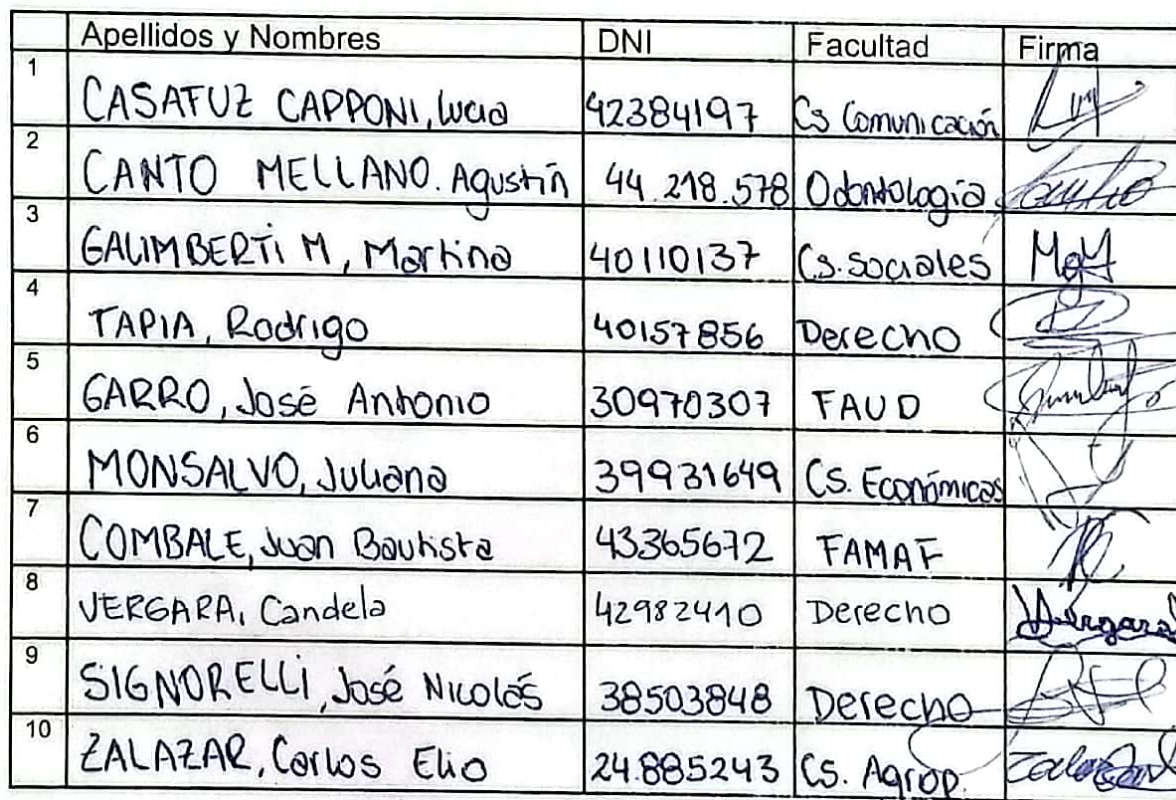 Apellidos y Nombres DNI Facultad Firma
1 CASAFUZ CAPPONI, Lucia 42384197 Cs Comunicación
2 CANTO MELLANO. Agustín 44.218.578 Odontología
3 GALIMBERTI M, Martina 40110137 Cs. sociales
4 TAPIA, Rodrigo 40157856 Derecho
5 GARRO, José Antonio 30970307 FAUD
6 MONSALVO, Juliana 39931649 Cs. Económicas
7 COMBALE, Juan Bautista 43365672 FAMAF
8 VERGARA, Candela 42982410 Derecho Vergara
9 SIGNORELLI, José Nicolás 38503848 Derecho
10 ZALAZAR, Carlos Elio 24.885243 Cs. Agrop.